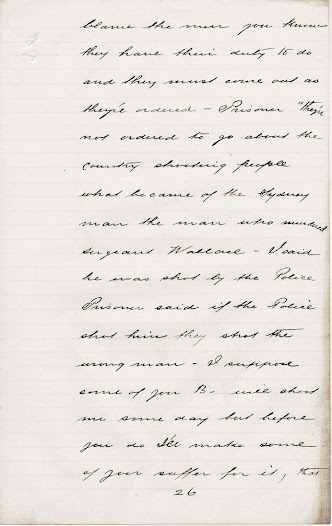 blame the men you know
they have their duty to do
and they must come out as
they're ordered - Prisoner "They're
not ordered to go about the
country shooting people
what became of the Sydney
man the man who murdered
Sergeant Wallace - I said
he was shot by the Police
Prisoner said if the Police
shot him they shot the
wrong man - I suppose
some of you B- will shoot
me some day but before
you do I'll make some
of your suffer for it, that
26